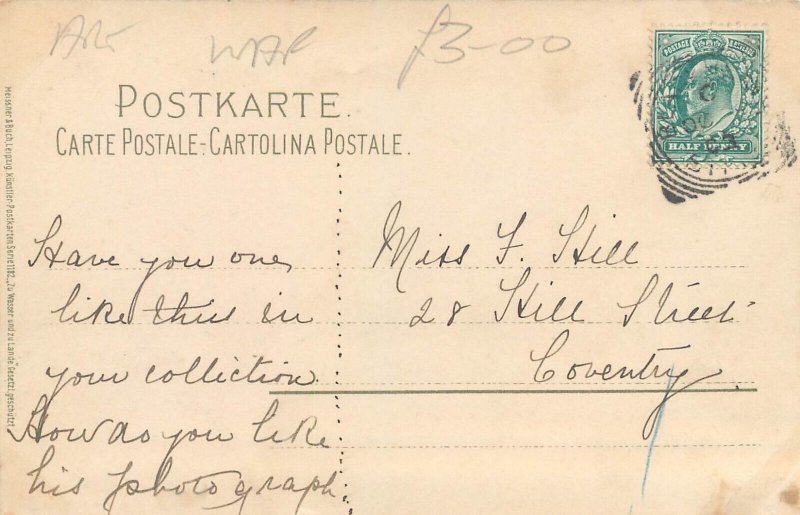 Art
War
£3-00
POSTKARTE.
CARTE POSTALE-CARTOLINA POSTALE.
POSTAGE REVENUE
HALF PENNY
Meissner & Buch, Leipzig. Künstler-Postkarten Serie 1182. „Zu Wasser und zu Lande" Gesetzl. geschützt
Have you one
like this in
your collection
How do you like
his photograph.
Miss F. Hill
28 Hill Street
Coventry